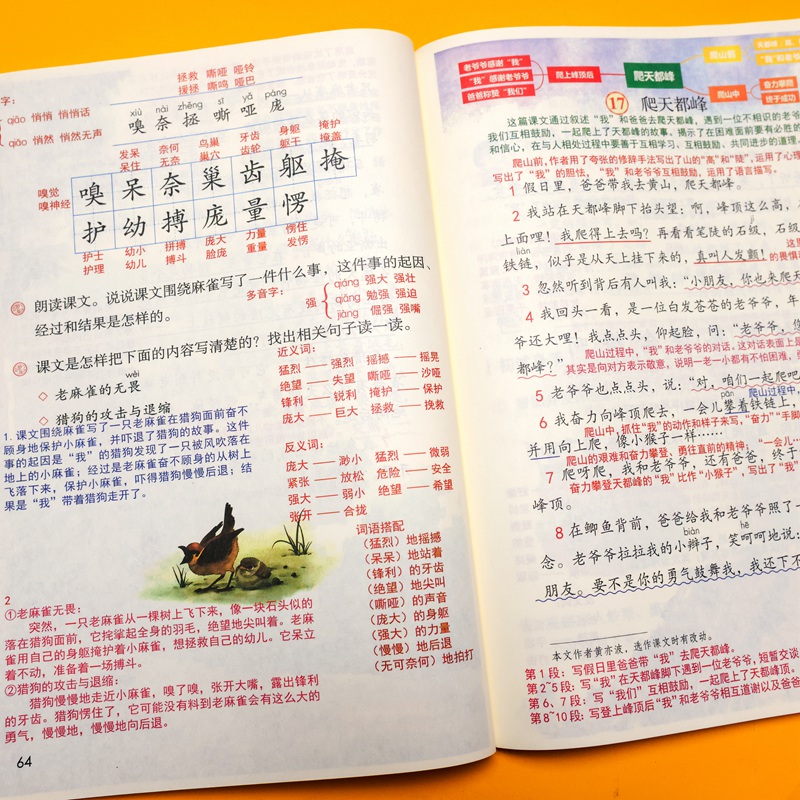 拯救 嘶哑 哑铃
援拯 嘶鸣 哑巴
字：
qiāo 悄悄 悄悄话
qiǎo 悄然 悄然无声
xiù nài zhěng sī yǎ páng
嗅 奈 拯 嘶 哑 庞
发呆 奈何 鸟巢 牙齿 身躯 掩护
呆住 无奈 巢穴 齿轮 躯干 掩盖
嗅觉
嗅神经
嗅 呆 奈 巢 齿 躯 掩
护 幼 搏 庞 量 愣
护士 幼小 拼搏 庞大 力量 愣住
护理 幼儿 搏斗 脸庞 重量 发愣
朗读课文。说说课文围绕麻雀写了一件什么事，这件事的起因、
经过和结果是怎样的。
多音字：
强
qiáng 强大 强壮
qiǎng 勉强 强迫
jiàng 倔强 强嘴
课文是怎样把下面的内容写清楚的？找出相关句子读一读。
wèi
◇ 老麻雀的无畏
◇ 猎狗的攻击与退缩
近义词：
猛烈——强烈 摇撼——摇晃
绝望——失望 嘶哑——沙哑
锋利——锐利 掩护——保护
庞大——巨大 拯救——挽救
1. 课文围绕麻雀写了一只老麻雀在猎狗面前奋不
顾身地保护小麻雀，并吓退了猎狗的故事。这件
事的起因是“我”的猎狗发现了一只被风吹落在
地上的小麻雀；经过是老麻雀奋不顾身的从树上
飞落下来，保护小麻雀，吓得猎狗慢慢后退；结
果是“我”带着猎狗走开了。
反义词：
庞大——渺小 猛烈——微弱
紧张——放松 危险——安全
强大——弱小 绝望——希望
张开——合拢
词语搭配
（猛烈）地摇撼
（呆呆）地站着
（锋利）的牙齿
（绝望）地尖叫
（嘶哑）的声音
（庞大）的身躯
（强大）的力量
（慢慢）地后退
（无可奈何）地拍打
2
①老麻雀无畏：
突然，一只老麻雀从一棵树上飞下来，像一块石头似的
落在猎狗面前，它挓挲起全身的羽毛，绝望地尖叫着。老麻
雀用自己的身躯掩护着小麻雀，想拯救自己的幼儿。它呆立
着不动，准备着一场搏斗。
②猎狗的攻击与退缩：
猎狗慢慢地走近小麻雀，嗅了嗅，张开大嘴，露出锋利
的牙齿。猎狗愣住了，它可能没有料到老麻雀会有这么大的
勇气，慢慢地，慢慢地向后退。
64
老爷爷感谢“我”
“我”感谢老爷爷
爸爸称赞“我们”
爬上峰顶后
爬天都峰
爬山前
爬山中
奋力攀爬
终于成功
17 爬天都峰
这篇课文通过叙述“我”和爸爸去爬天都峰，遇到一位不相识的老爷
我们互相鼓励，一起爬上了天都峰的故事。揭示了在困难面前要有必胜的
和信心，在与人相处过程中要善于互相学习、互相鼓励、共同进步的道理。
爬山前，作者用了夸张的修辞手法写出了山的“高”和“陡”，运用了心理
写出了“我”的胆怯，“我”和老爷爷互相鼓励，运用了语言描写。
1 假日里，爸爸带我去黄山，爬天都峰。
2 我站在天都峰脚下抬头望：啊，峰顶这么高，
上面哩！我爬得上去吗？再看看笔陡的石级，石级
liàn
铁链，似乎是从天上挂下来的，真叫人发颤！
的畏惧
3 忽然听到背后有人叫我：“小朋友，你也来爬天
4 我回头一看，是一位白发苍苍的老爷爷，年
爷还大哩！我点点头，仰起脸，问：“老爷爷，你
都峰？”
爬山过程中，“我”和老爷爷的对话。这对话表面上是
其实是向对方表示敬意，说明一老一小都有不怕困难，
5 老爷爷也点点头，说：“对，咱们一起爬吧
pān
6 我奋力向峰顶爬去，一会儿攀着铁链上，
爬山中，抓住“我”的动作和样子来写，“奋力”“手脚
并用向上爬，像小猴子一样……
爬山的艰难和奋力攀登、勇往直前的精神；“一会儿
7 爬呀爬，我和老爷爷，还有爸爸，终于
奋力攀登天都峰的“我”比作“小猴子”，写出了“我”
峰顶。
8 在鲫鱼背前，爸爸给我和老爷爷照了一
biàn hē
念。老爷爷拉拉我的小辫子，笑呵呵地说：
朋友。要不是你的勇气鼓舞我，我还下不
本文作者黄亦波，选作课文时有改动。
第1段：写假日里爸爸带“我”去爬天都峰。
第2~5段：写“我”在天都峰脚下遇到一位老爷爷，短暂交谈
第6、7段：写“我们”互相鼓励，一起爬上了天都峰顶。
第8~10段：写登上峰顶后“我”和老爷爷相互道谢以及爸爸